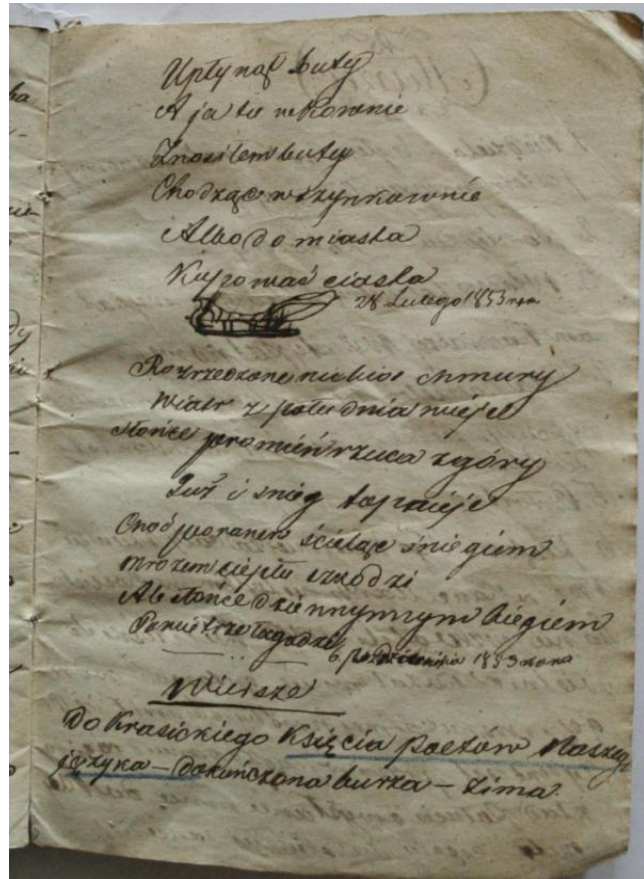 Upłynął luty
A ja tu
Znosiłem buty
Chodząc w szynkownie
Albo do miasta
Kupować ciasta
28 Lutego 1853 roku
Rozrzedzone niebios chmury
Wiatr z południa wieje
Słońce promień rzuca z góry
Już i śnieg topnieje
Choć poranem ścieląc śniegiem
Mrozem ciepłu szkodzi
Ale słońce dziennym swym biegiem
Powietrze łagodzi
6 Października 1853 roku
Wiersze
Do Krasickiego Księcia poetów Naszego
języka – dokończona burza – Zima.